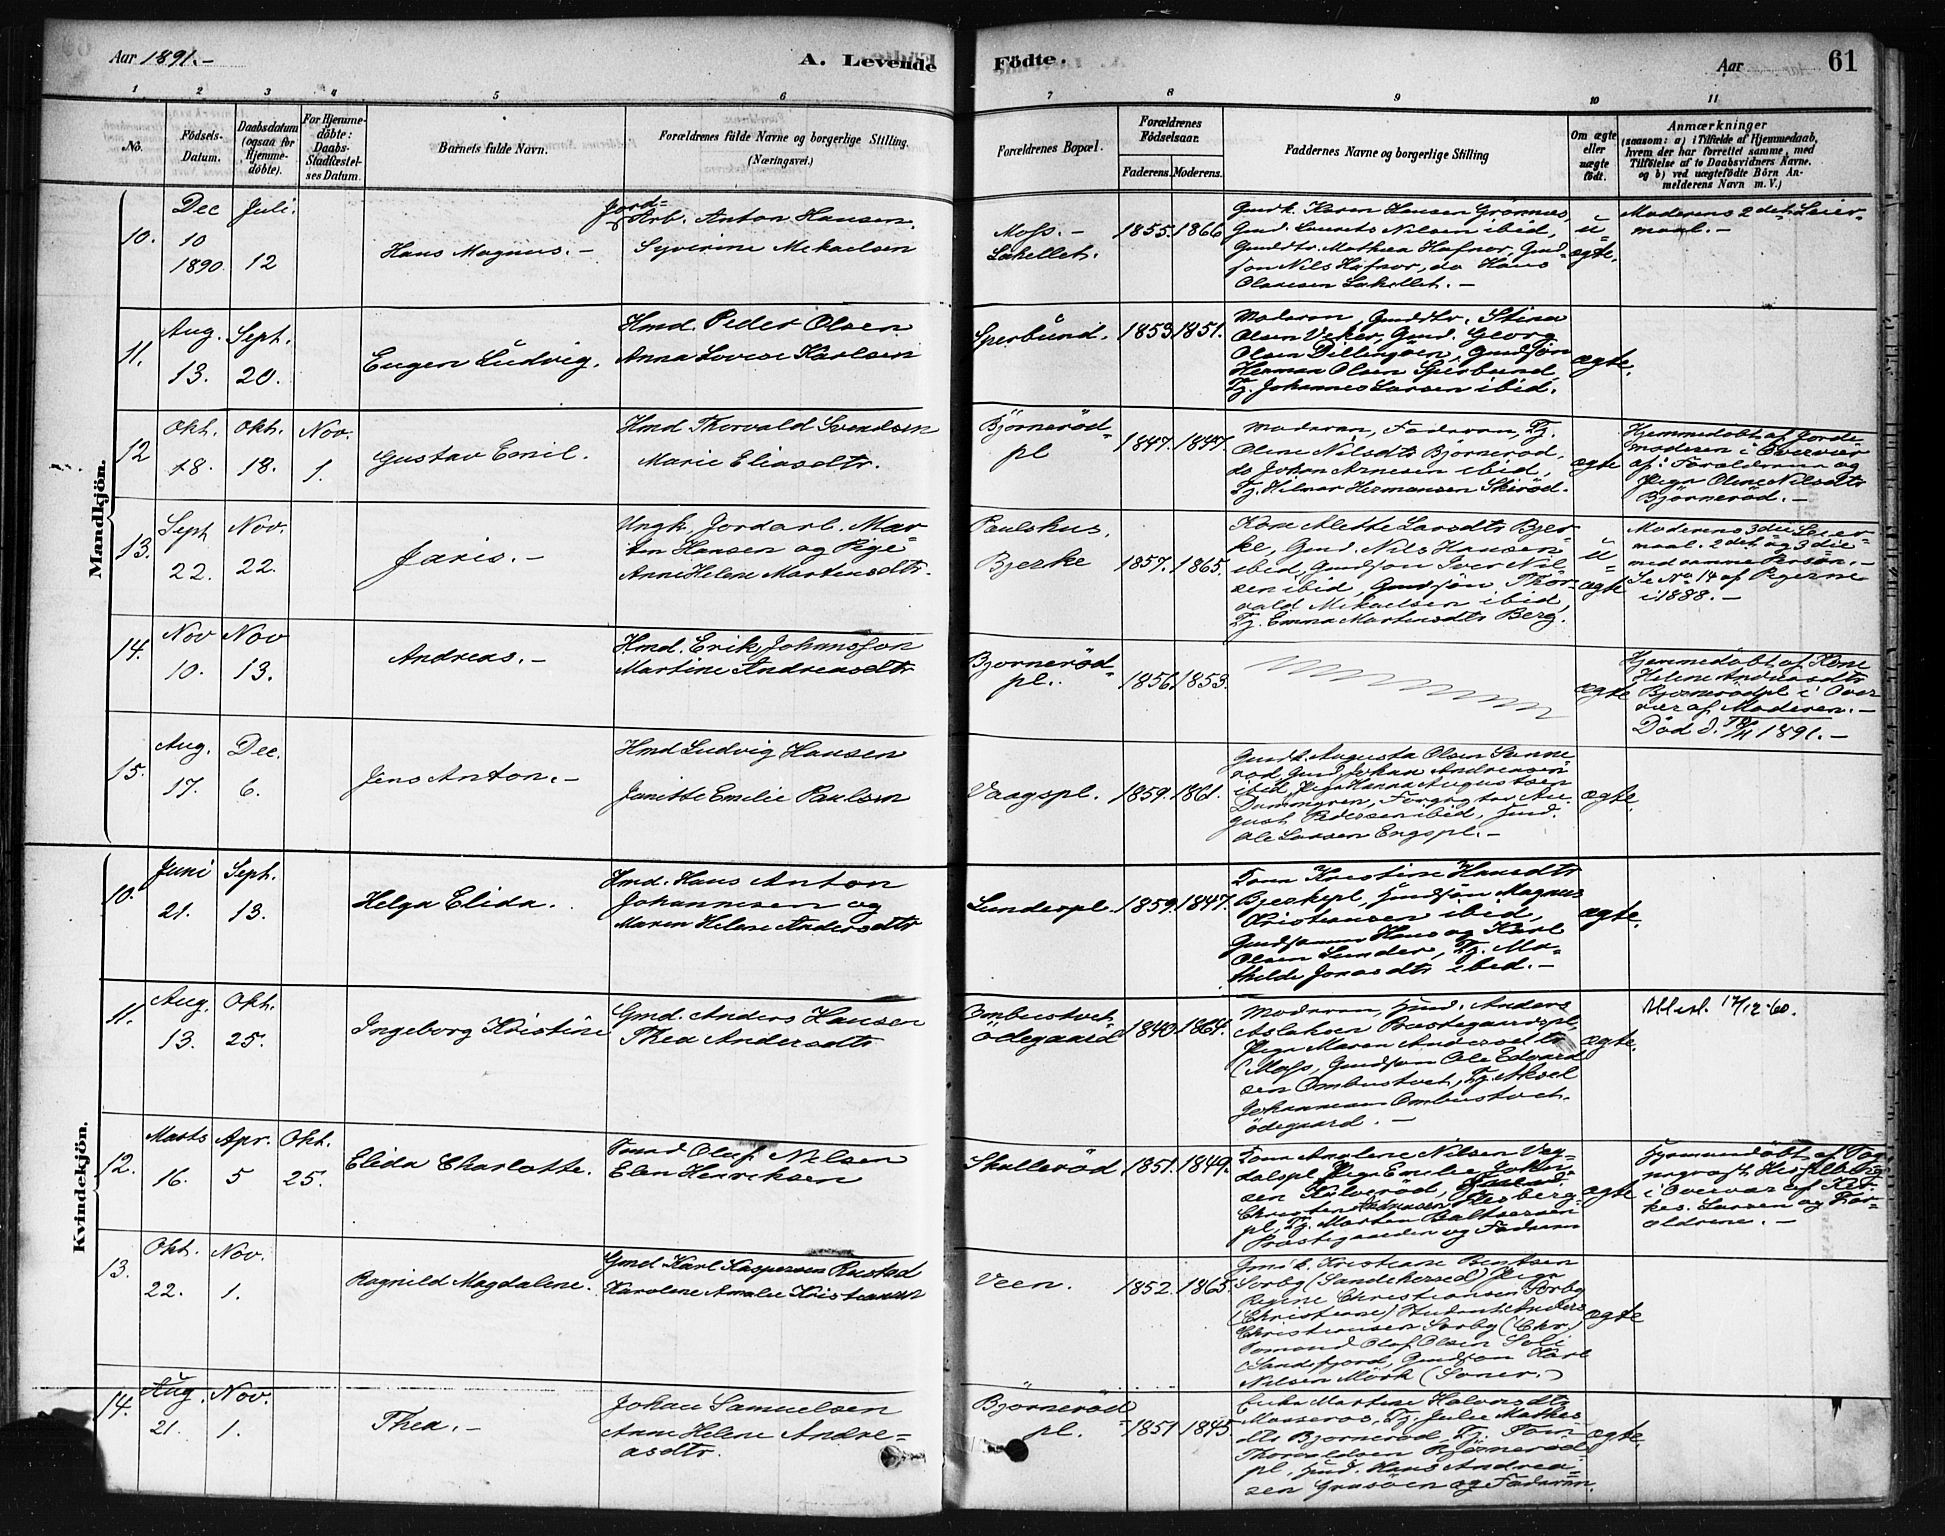 Aar 1891.-
A. Levende
Födte.
Aar
61
1
2
3
4
5
6
7
8
9
10
11
No.
Födsels-
Datum.
Daabsdatum
(ogsaa for
Hjemme-
döbte).
For Hjemme-
döbte:
Daabs-
Stadfæstel-
ses Datum.
Barnets fulde Navn.
Forældrenes fulde Navne og borgerlige Stilling.
(Næringsvei.)
Forældrenes Bopæl.
Forældrenes
Födselsaar.
Faderens.
Moderens.
Faddernes Navne og borgerlige Stilling
Om ægte
eller
uægte
födt.
Anmærkninger
(saasom: a) i Tilfælde af Hjemmedaab,
hvem der har forrettet samme, med
Tilföielse af to Daabsvidners Navne.
og b) ved uægtefödte Börn An-
melderens Navn m. V.)
Mandkjön.
10.
Dec
10
1890.
Juli.
12
Hans Magnus.-
Jord=
Arb. Anton Hansen.
Syverine Mikaelsen
Moss.-
1855. 1866
Gmdk. Karen Hansen
Gmd. Laurits Nilsen ibid,
Gmddtr. Mathea Hafnor, Gmd
søn Nils Hafnor, do Hans
Olausen
ü=
ægte.
Moderens 2det Leier-
maal.-
11.
Aug.
13.
Sept.
20.
Eugen Ludvig.
Hmd. Peder Olsen
Anna Lovise Karlsen
Sperbund.
1853 1851.
Moderen, Gmddtr. Stina
Olsen Veker, Gmd. Georg
Olsen Dillingöen, Gmdsøn
Herman Olsen Sperbund,
Tj. Johannes Larsen ibid.
ægte.
12
Okt.
18.
Okt.
18.
Nov.
1.
Gustav Emil.
Hmd Thorvald Svendsen
Marie Eliasdtr.
Björneröd-
pl
1847. 1847.
Moderen, Faderen, Tj.
Oline Nilsdtr Björneröd,
do Johan Arnesen ibid,
Tj. Hilmar Hermansen Skiröd.
ægte
Hjemmedöbt af Jorde-
moderen i Overvær
af: Forældrene og
Pige Oline Nilsdtr
Björneröd.-
13.
Sept
22.
Nov.
22.
Jaris.-
Ungk. Jordarb. Mar-
tin Hansen og Pige
Anne Helene Martinsdtr.
Paulshus.
Bjerke
1857. 1865.
Kone Alette Larsdtr Bjer-
ke, Gmd. Nils Hansen
ibid, Gmdsøn Iver Nil-
sen ibid, Gmdsøn Thor-
vald Mikaelsen ibid,
Tj. Emma Martinsdtr Berg.
ü=
ægte
Moderens 3die Leier-
maal. 2det og 3die
med samme Person.-
Se No 14 af Pigerne
i 1888.-
14.
Nov
10.
Nov
13.
Andreas.-
Hmd. Erik Johansson
Martine Andreasdtr
Björneröd-
pl.
1856. 1853.
ægte
Hjemmedöbt af Kone
Helene Andreasdtr
Björnerödpl i Over
vær af Moderen.-
Död d. 1891.-
15.
Aug.
17.
Dec.
6.
Jens Anton.-
Hmd Ludvig Hansen
Janette Emilie Paulsen
Vaagspl.
1859. 1861.
Gmdk. Augusta Olsen Sønne
rød, Gmd. Johan Andreasen
ibid, Pige Hanna Augustsen
Dammgren, Forgylder Au-
gust Pedersen ibid, Gmd.
Ole Larsen Engspl.-
ægte.
Kvindekjön.
10.
Juni
21.
Sept.
13.
Helga Elida.
Hmd. Hans Anton
Johannesen og
Maren Helene Andersdtr
Sunderspl.
1859. 1847.
Kone Kristine Hansdtr
Bjerkepl, Gmdsøn Magnus
Kristiansen ibid,
Gmdsønner Hans og Karl
Olsen Sunder, Tj. Ma-
thilde Jonasdtr ibid.-
ægte.
11.
Aug.
13.
Okt.
25.
Ingeborg Kristine
Gmd. Anders Hansen
Thea Andersdtr
Ombustvet
Ödegaard
1840. 1864.
Moderen, Gmd. Anders
Aslaksen Prestegaardspl,
Pige Maren Andersdtr
(Moss, Gmdsøn Ole Edvard
sen Ombustvet, Tj. Aksel
Johannesen Ombustvet-
ödegaard.-
ægte.
Attest. 17/12-60.
12.
Marts
16.
Apr.
5
Okt.
25.
Elida Charlotte.
Olaf Nilsen
Elen Henriksen
Skalleröd
1851. 1849.
Kone Analene Nilsen Vag-
dalspl, Pige Emilie Johan-
sen Kulveröd,
Christen Andreasen
pl, Tj. Morten Baltsersen
Prestegaarden og Faderen
ægte
Hjemmedöbt af Sog-
nepræst Hesselberg
i Overvær af Kir-
kes. Larsen og For-
ældrene.-
13.
Okt.
22.
Nov.
1.
Ragnild Magdalene.
Gmd Karl Kaspersen Rustad
Karolene Amalie Kristiansen
Veen.
1852. 1865.
Gmdk. Kristiane Bentsen
Sorby (Sandeherred) Pige
Regine Christiansen Sorby
(Christiane) Student Anders
Christiansen Sorby (Chr.)
Sömand Olaf Olsen Soli
(Sandefjord, Gmdsøn Karl
Nilsen Mörk (Soner.)
ægte
14.
Aug.
21.
Nov.
1.
Thea.-
Johan Samuelsen
Anne Helene Andre=
asdtr.
Björneröd
pl.
1851 1845.
Enke Martine Halvorsdtr
Tj. Julie Mathis-
dtr Björneröd, Tj. Tom
Thorvaldsen Björneröd-
pl, Gmd. Hans Andrea-
sen og Faderen.
ægte.